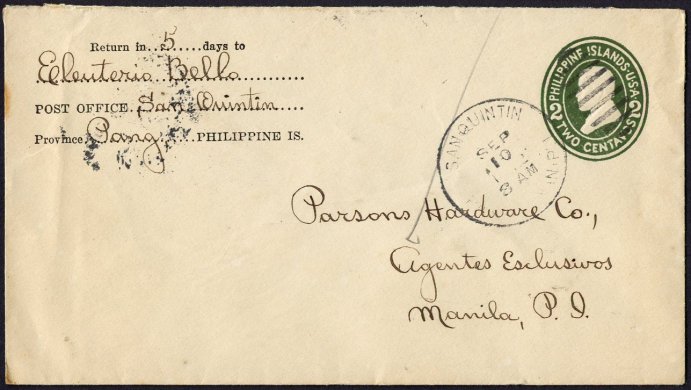 Return in..5......days to
Eleuterio Bello
POST OFFICE San Quintin
Province Pang PHILIPPINE IS.
PHILIPPINE ISLANDS·U.S.A.
2 TWO CENTAVOS 2
SAN QUINTIN
SEP
10
8 AM
P.I.
Parsons Hardware Co.,
Agentes Esclusivos
Manila, P. I.